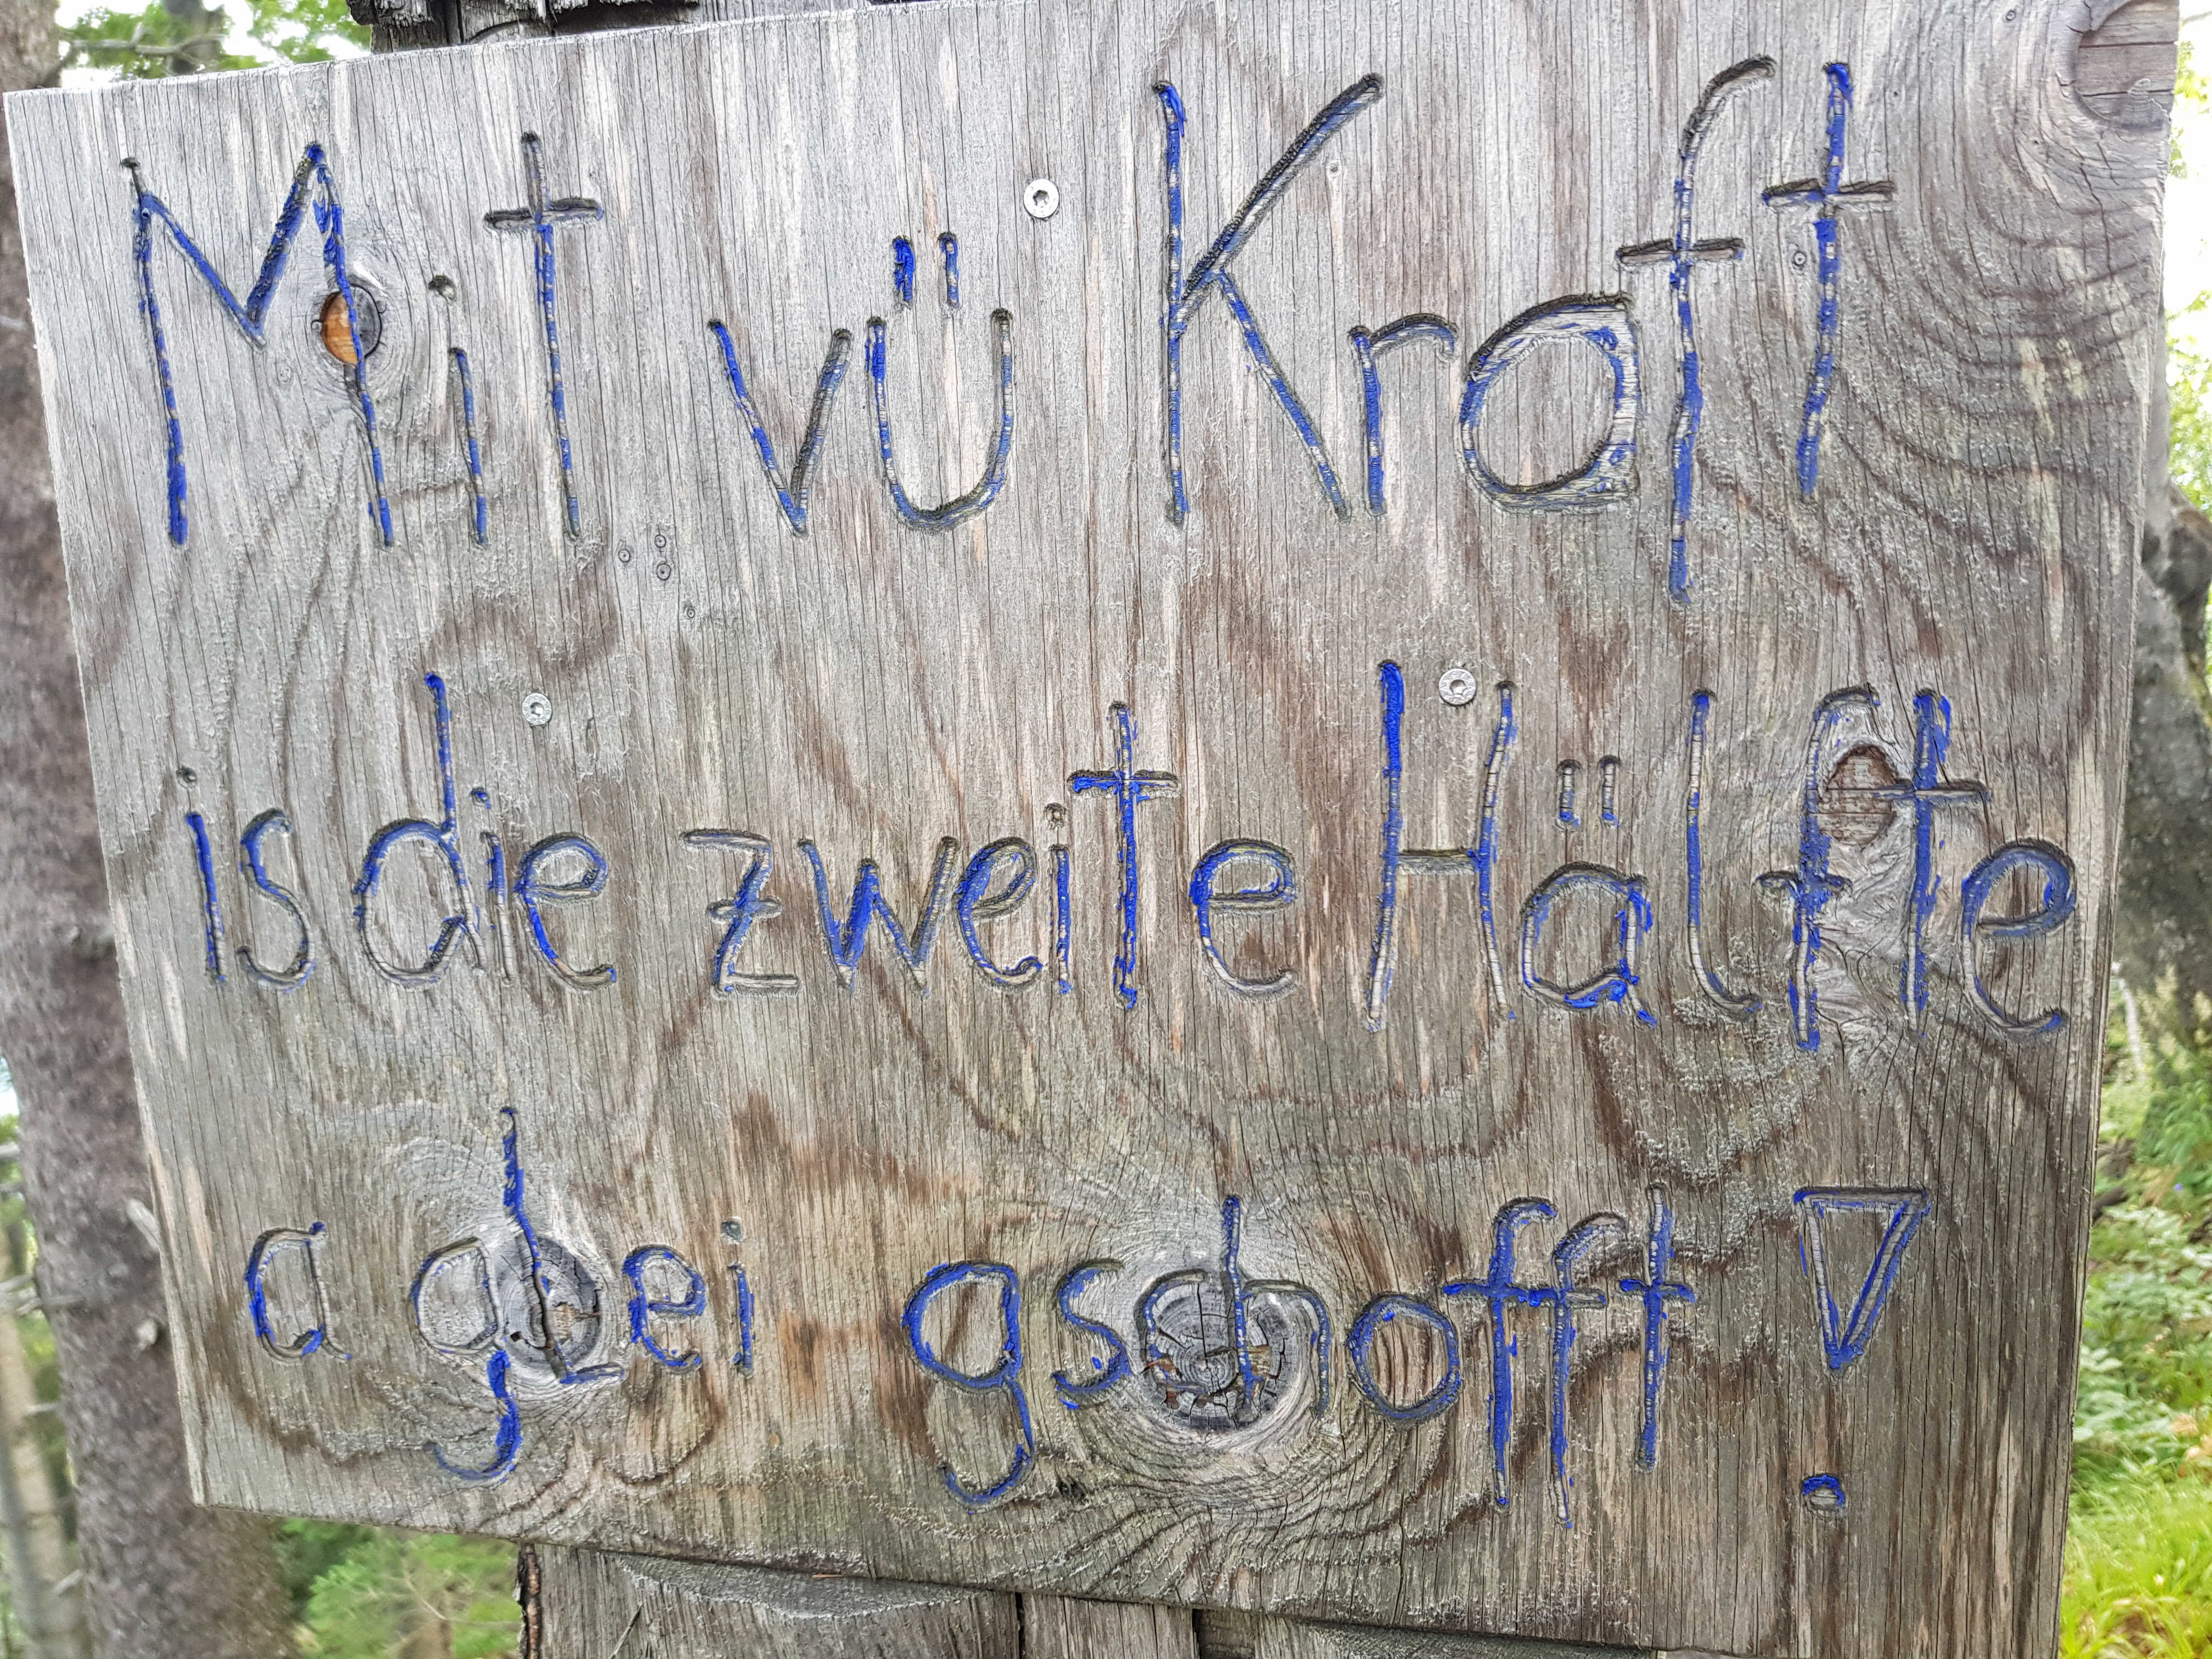 Mit vü Kraft
is die zweite Hälfte
a glei gschofft!